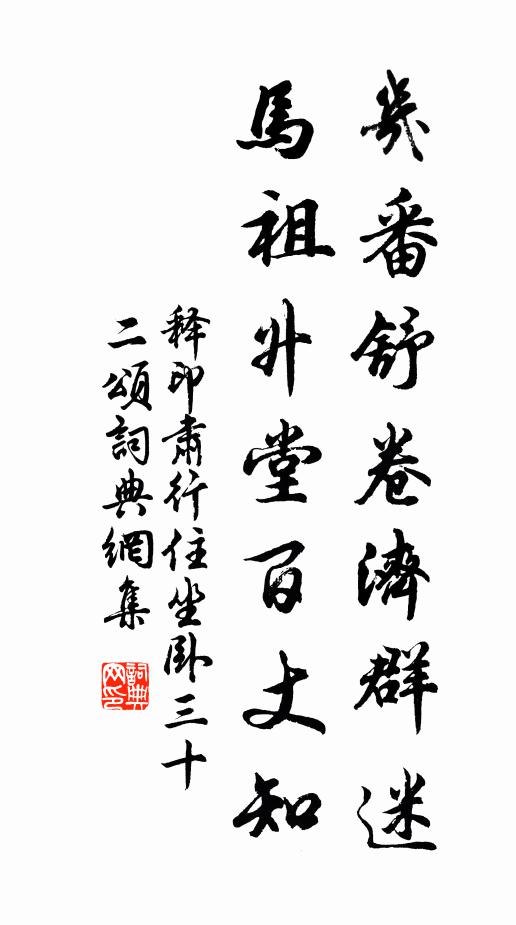 幾番舒卷濟群迷
馬祖升堂百丈知
釋印肅行住坐臥三十
二頌詞典網集
詞典网印